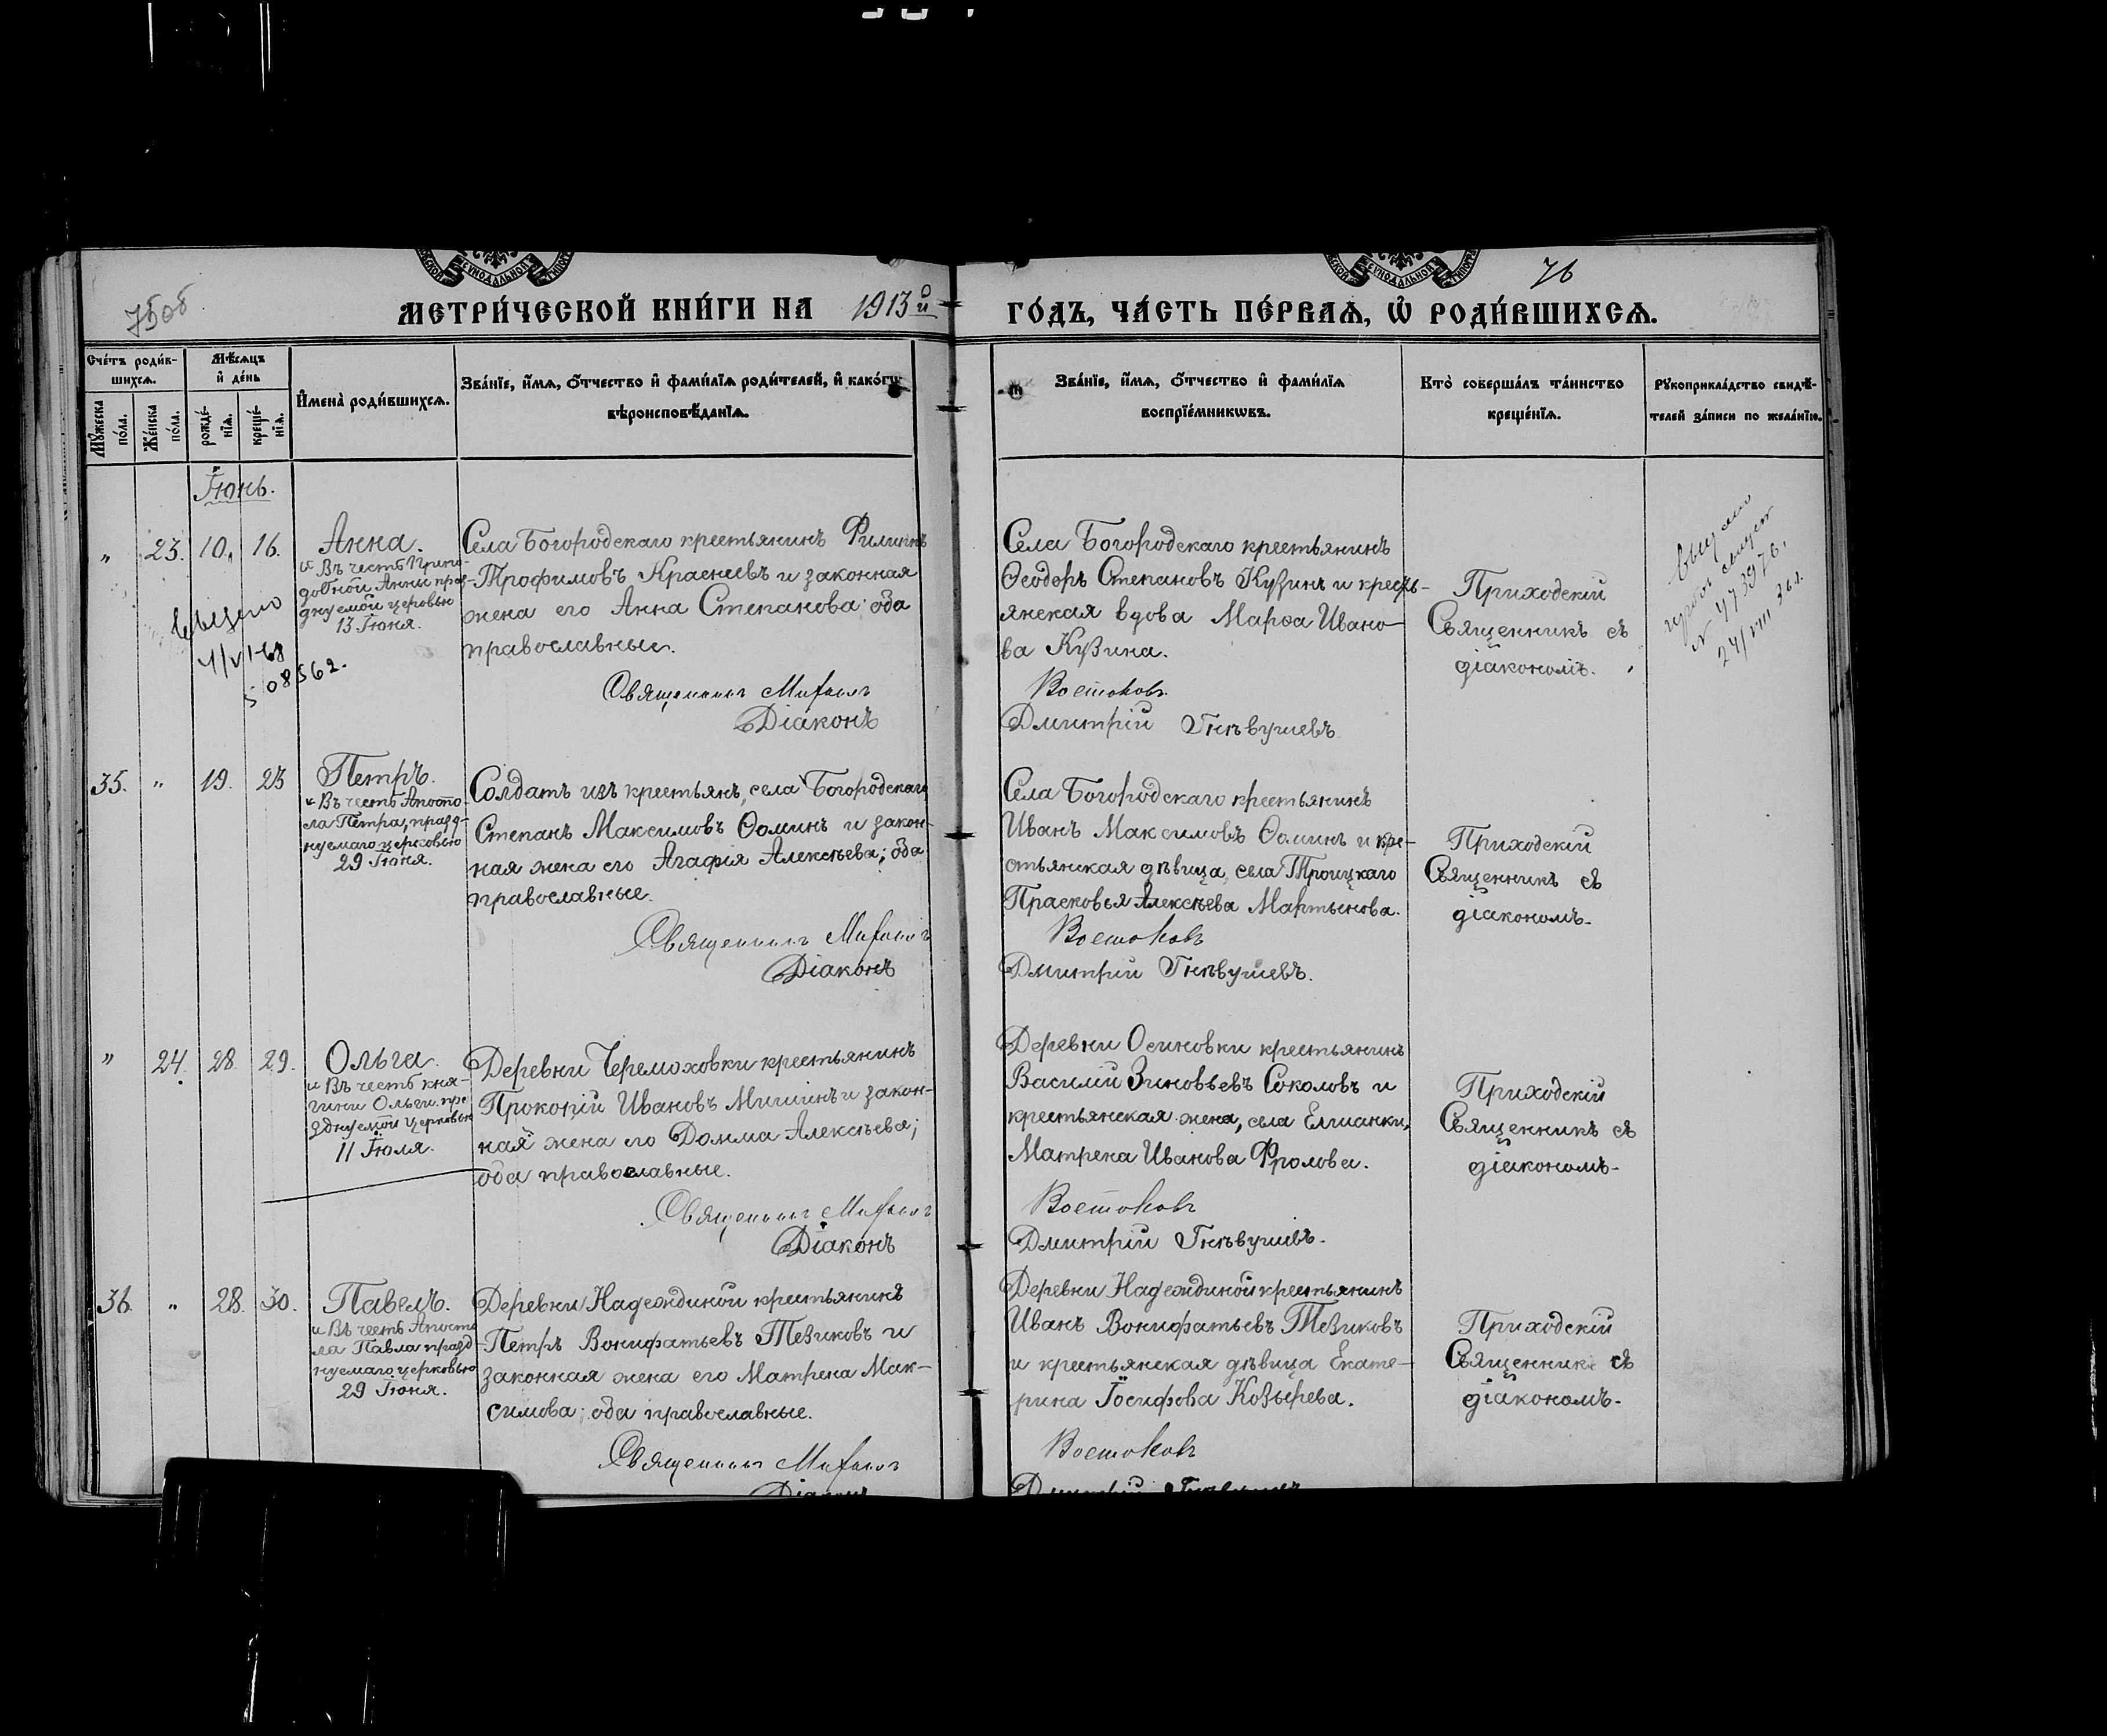 75об
76
МЕТРИ́ЧЕСКОЙ КНИ́ГИ НА 1913й ГО́ДЪ, ЧА́СТЬ ПЕ́РВАѦ, Ѡ҆ РОДИ́ВШИХСѦ.
Сче́тъ роди́в-
шихсѧ.
Мꙋ́жеска
по́ла.
Же́нска
по́ла.
Мѣ́сѧцъ
и҆ де́нь
рожде́-
нїѧ.
креще́-
нїѧ.
И҆мена̀ роди́вшихсѧ.
Зва́нїе, и҆́мѧ, ѻ҆́тчество и҆ фами́лїѧ роди́телей, и҆ како́гѡ
вѣроисповѣ́данїѧ.
Зва́нїе, и҆́мѧ, ѻ҆́тчество и҆ фами́лїѧ
воспрїе́мникѡвъ.
Кто̀ соверша́лъ та́инство
креще́нїѧ.
Рꙋкоприкла́дство свидѣ́-
телей за́писи по жела́нїю.
Іюнь.
„ 23. 10. 16.
Анна.
Въ честь Препо-
добной Анны праз-
днуемой церковью
13 Іюня.
Села Богородскаго крестьянинъ Филиппъ
Трофимовъ Краснеевъ и законная
жена его Анна Степанова; оба
православные.
Священникъ Михаилъ
Діаконъ
Села Богородскаго крестьянинъ
Ѳеодоръ Степановъ Кузинъ и кресть-
янская вдова Марѳа Ивано-
ва Кузина.
Востоковъ
Дмитрій Гнѣвушевъ
Приходскій
Священникъ съ
діакономъ.
508562.
N 473976.
24/VIII 36 г.
35. „ 19. 23
Петръ.
Въ честь Апосто-
ла Петра, празд-
нуемаго церковью
29 Іюня.
Солдатъ изъ крестьянъ, села Богородскаго
Степанъ Максимовъ Ѳоминъ и закон-
ная жена его Агафія Алексѣева; оба
православные.
Священникъ Михаилъ
Діаконъ
Села Богородскаго крестьянинъ
Иванъ Максимовъ Ѳоминъ и кре-
стьянская дѣвица, села Троицкаго
Прасковья Алексѣева Мартынова.
Востоковъ
Дмитрій Гнѣвушевъ.
Приходскій
Священникъ съ
діакономъ.
„ 24. 28. 29.
Ольга.
Въ честь кня-
гини Ольги, пра
зднуемой церковью
11 Іюля.
Деревни Черемоховки крестьянинъ
Прокопій Ивановъ Мишинъ и закон-
ная жена его Домна Алексѣева;
оба православные.
Священникъ Михаилъ
Діаконъ
Деревни Осиновки крестьянинъ
Василій Зиновьевъ Соколовъ и
крестьянская жена, села Елшанки,
Матрена Иванова Фролова.
Востоковъ
Дмитрій Гнѣвушевъ.
Приходскій
Священникъ съ
діакономъ.
36. „ 28. 30.
Павелъ.
Въ честь Апосто
ла Павла празд
нуемаго церковью
29 Іюня.
Деревни Надеждиной крестьянинъ
Петръ Вонифатьевъ Тезиковъ и
законная жена его Матрена Мак-
симова; оба православные.
Священникъ Михаилъ
Діаконъ
Деревни Надеждиной крестьянинъ
Иванъ Вонифатьевъ Тезиковъ
и крестьянская дѣвица Екате-
рина Іосифова Козырева.
Востоковъ
Дмитрій Гнѣвушевъ
Приходскій
Священникъ съ
діакономъ.